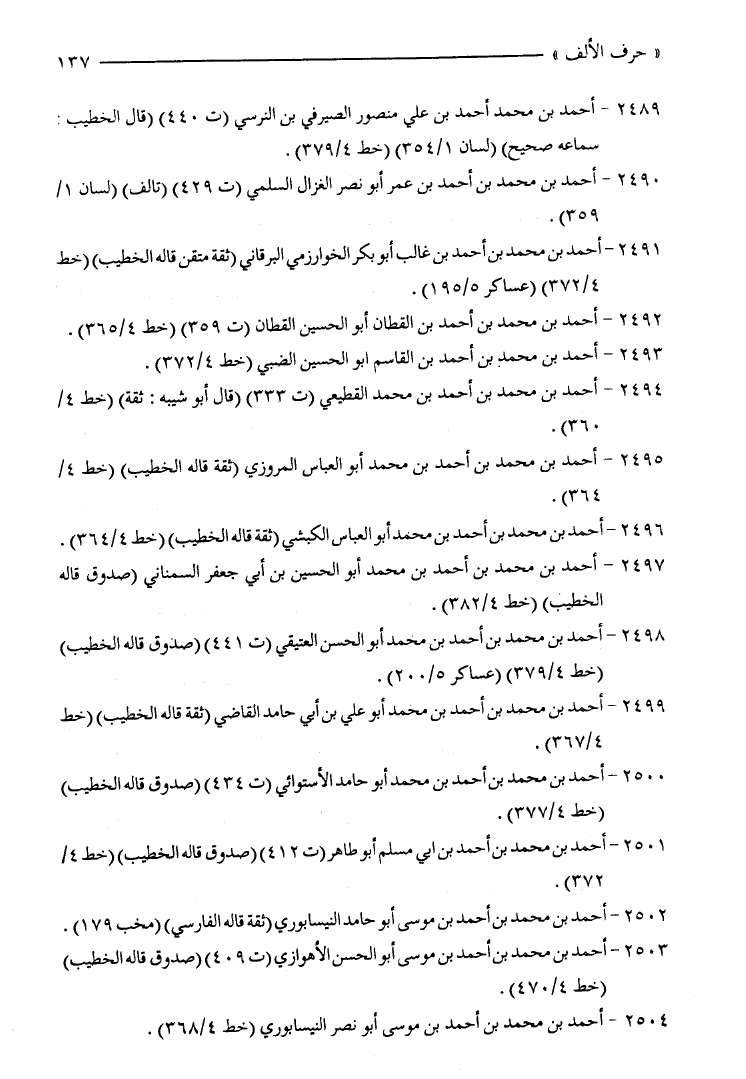 « حرف الألف » ١٣٧
٢٤٨٩ - أحمد بن محمد أحمد بن علي منصور الصيرفي بن النرسي (ت ٤٤٠) (قال الخطيب :
سماعه صحيح) (لسان ٣٥٤/١) (خط ٣٧٩/٤) .
٢٤٩٠ - أحمد بن محمد بن أحمد بن عمر أبو نصر الغزال السلمي (ت ٤٢٩) (تالف) (لسان ١/
٣٥٩) .
٢٤٩١ - أحمد بن محمد بن أحمد بن غالب أبو بكر الخوارزمي البرقاني (ثقة متقن قاله الخطيب) (خط
٣٧٢/٤) (عساكر ١٩٥/٥) .
٢٤٩٢ - أحمد بن محمد بن أحمد بن القطان أبو الحسين القطان (ت ٣٥٩) (خط ٣٦٥/٤) .
٢٤٩٣ - أحمد بن محمد بن أحمد بن القاسم ابو الحسين الضبي (خط ٣٧٢/٤) .
٢٤٩٤ - أحمد بن محمد بن أحمد بن محمد القطيعي (ت ٣٣٣) (قال أبو شيبه : ثقة) (خط ٤/
٣٦٠) .
٢٤٩٥ - أحمد بن محمد بن أحمد بن محمد أبو العباس المروزي (ثقة قاله الخطيب) (خط ٤/
٣٦٤) .
٢٤٩٦ - أحمد بن محمد بن أحمد بن محمد أبو العباس الكبشي (ثقة قاله الخطيب) (خط ٣٦٤/٤) .
٢٤٩٧ - أحمد بن محمد بن أحمد بن محمد أبو الحسين بن أبي جعفر السمناني (صدوق قاله
الخطيب) (خط ٣٨٢/٤) .
٢٤٩٨ - أحمد بن محمد بن أحمد بن محمد أبو الحسن العتيقي (ت ٤٤١) (صدوق قاله الخطيب)
(خط ٣٧٩/٤) (عساكر ٢٠٠/٥) .
٢٤٩٩ - أحمد بن محمد بن أحمد بن محمد أبو علي بن أبي حامد القاضي (ثقة قاله الخطيب) (خط
٣٦٧/٤) .
٢٥٠٠ - أحمد بن محمد بن أحمد بن محمد أبو حامد الأستوائي (ت ٤٣٤) (صدوق قاله الخطيب)
(خط ٣٧٧/٤) .
٢٥٠١ - أحمد بن محمد بن أحمد بن ابي مسلم أبو طاهر (ت ٤١٢) (صدوق قاله الخطيب) (خط ٤/
٣٧٢) .
٢٥٠٢ - أحمد بن محمد بن أحمد بن موسى أبو حامد النيسابوري (ثقة قاله الفارسي) (مخب ١٧٩) .
٢٥٠٣ - أحمد بن محمد بن أحمد بن موسى أبو الحسن الأهوازي (ت ٤٠٩) (صدوق قاله الخطيب)
(خط ٤٧٠/٤) .
٢٥٠٤ - أحمد بن محمد بن أحمد بن موسى أبو نصر النيسابوري (خط ٣٦٨/٤) .